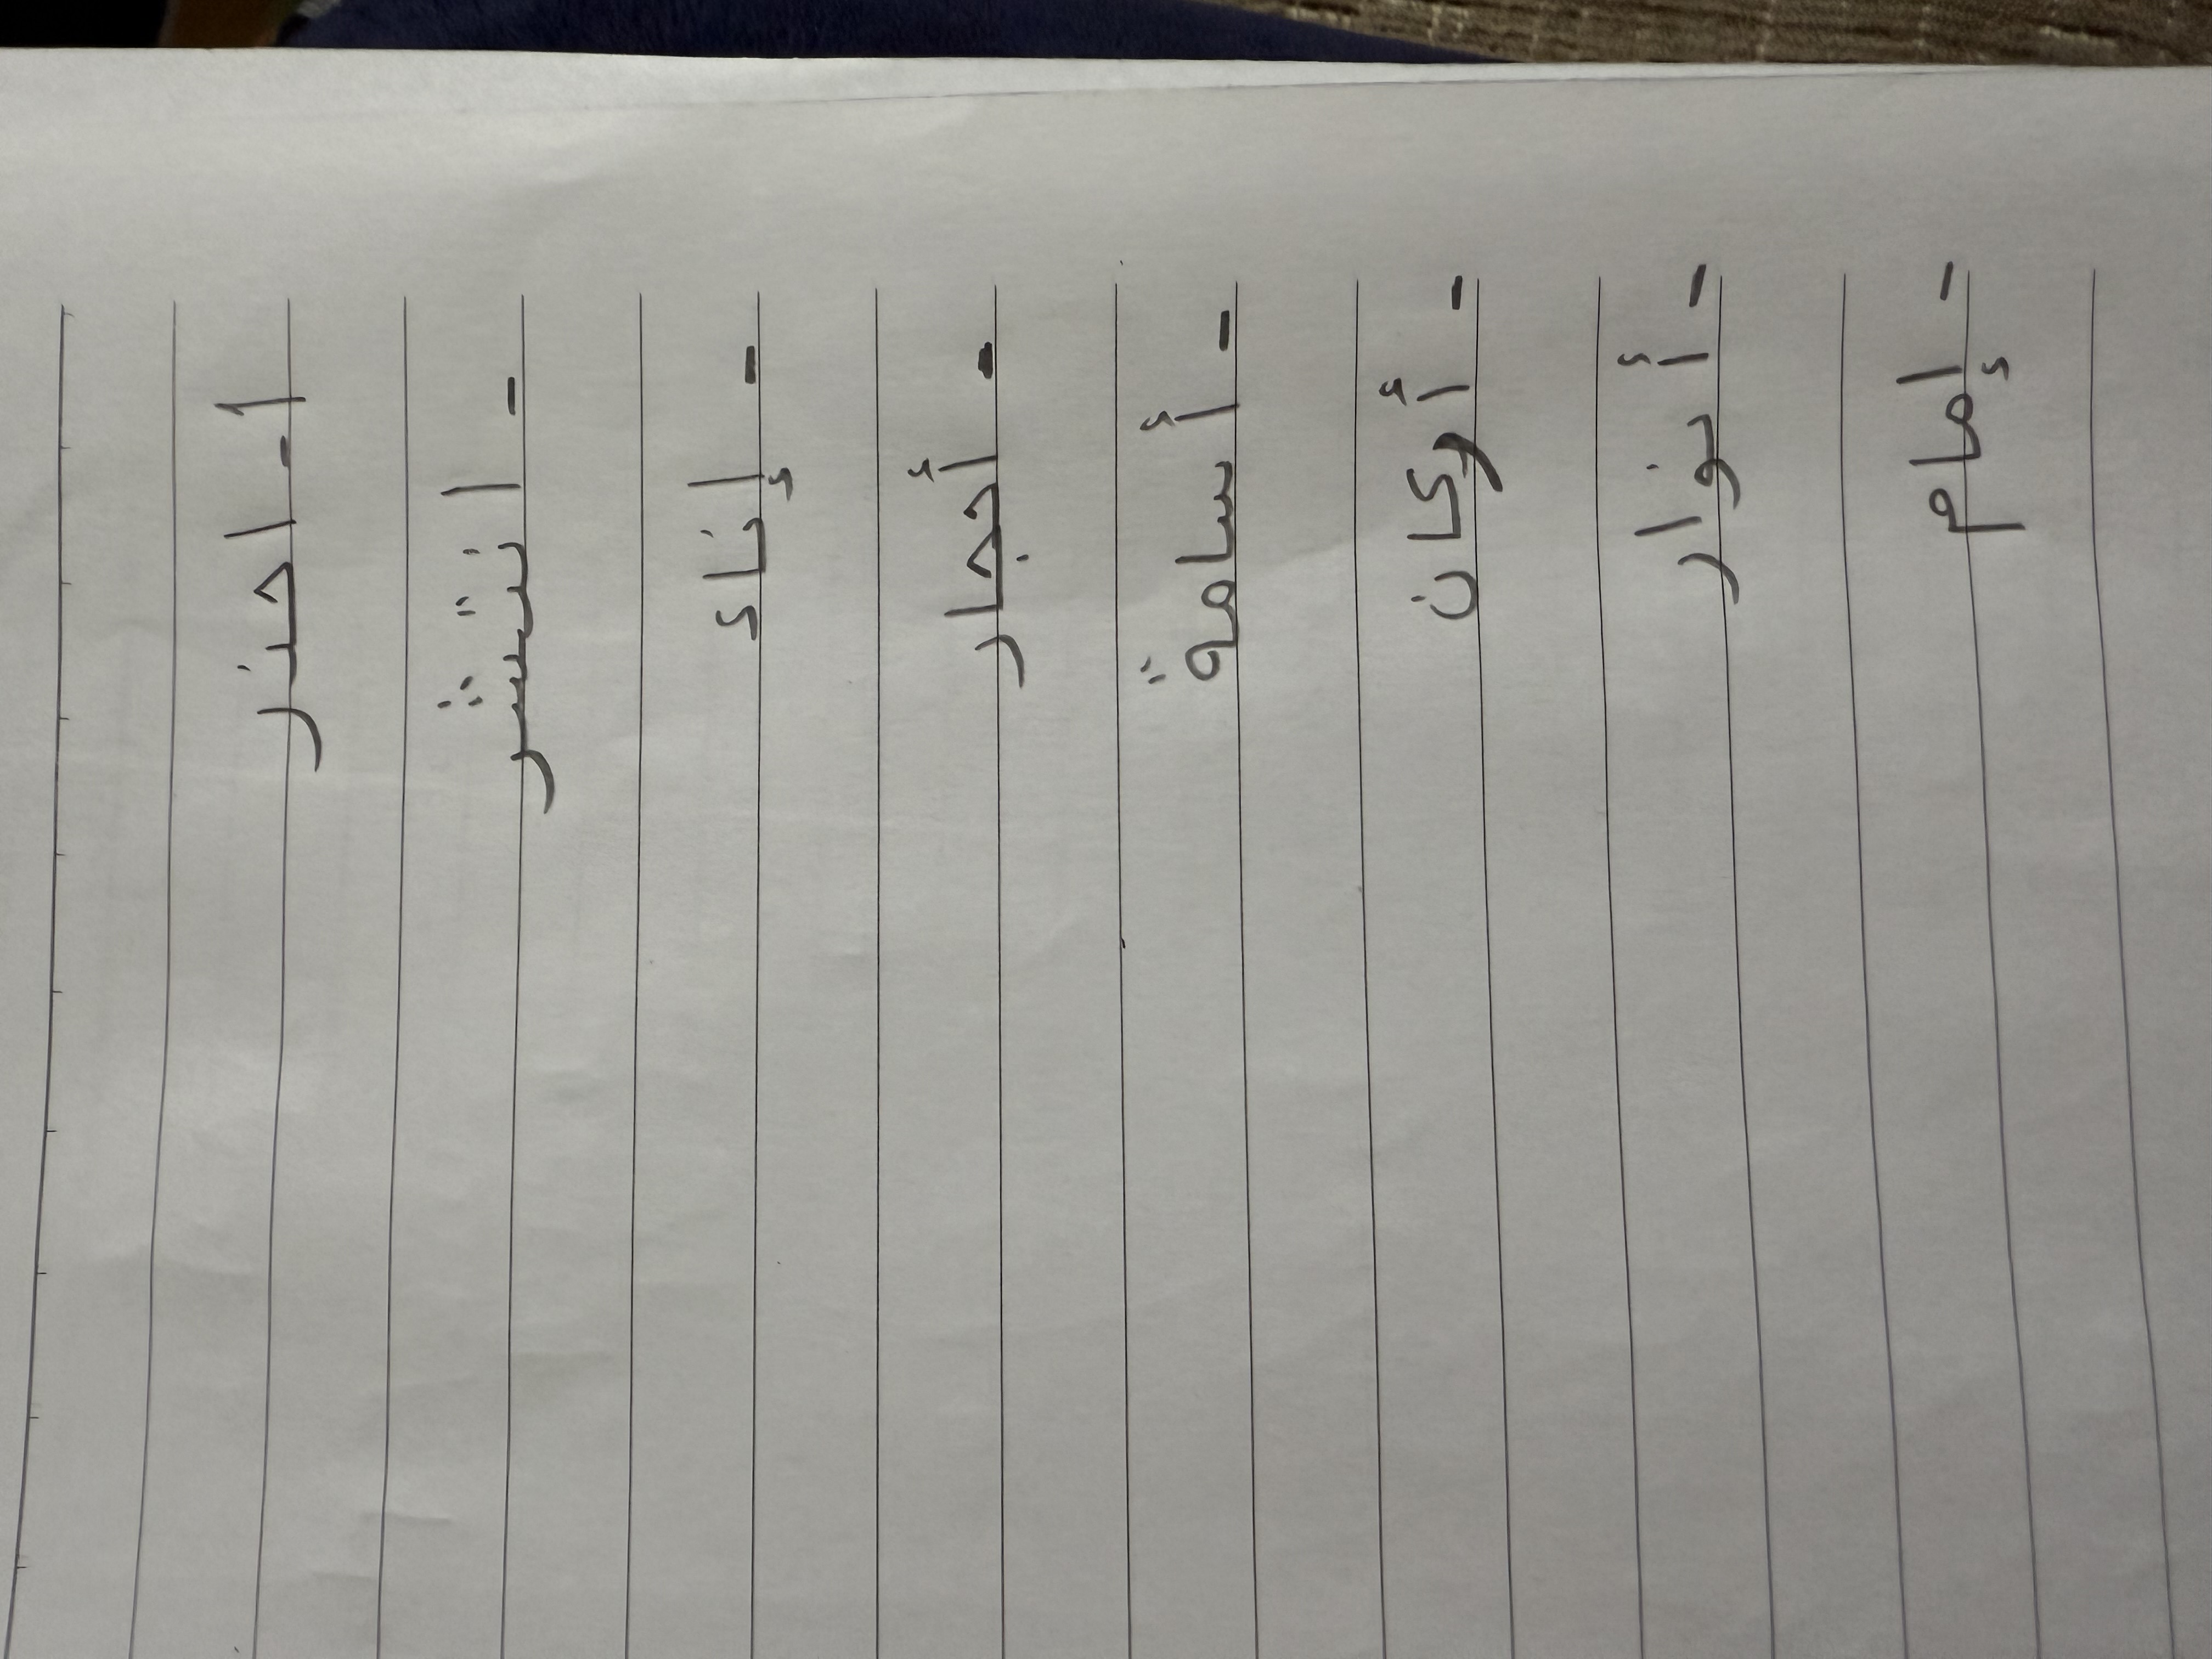 1- احذر
- انتشر
- إناء
- أحجار
- أسامة
- أركان
- أنوار
- إمام